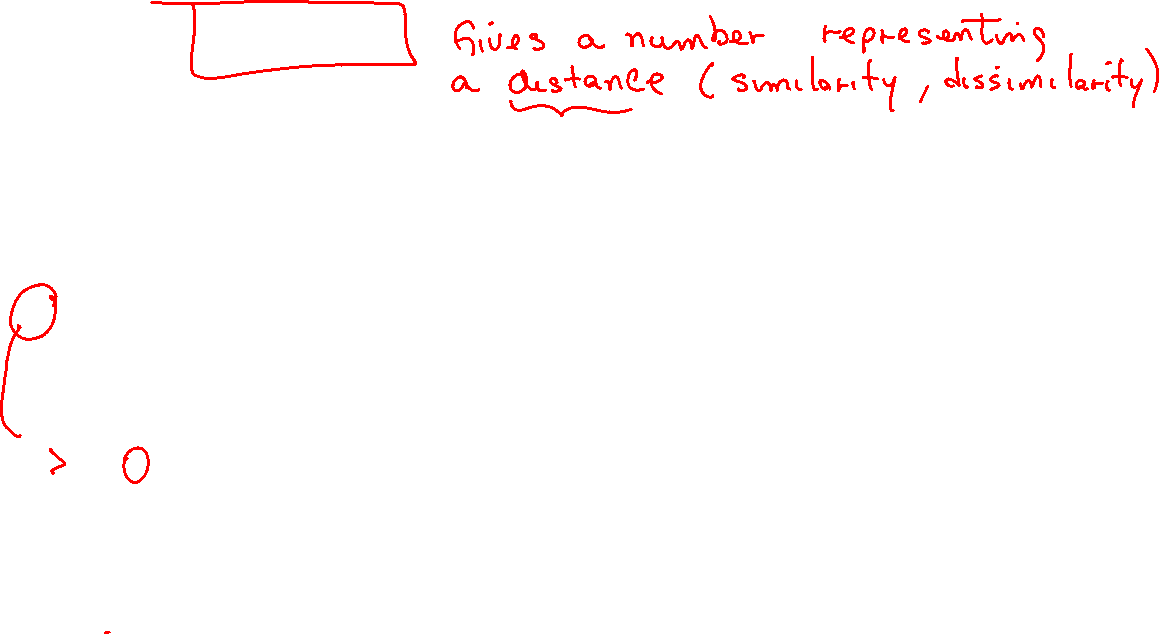 Gives a number representing
a distance (similarity, dissimilarity)
> 0